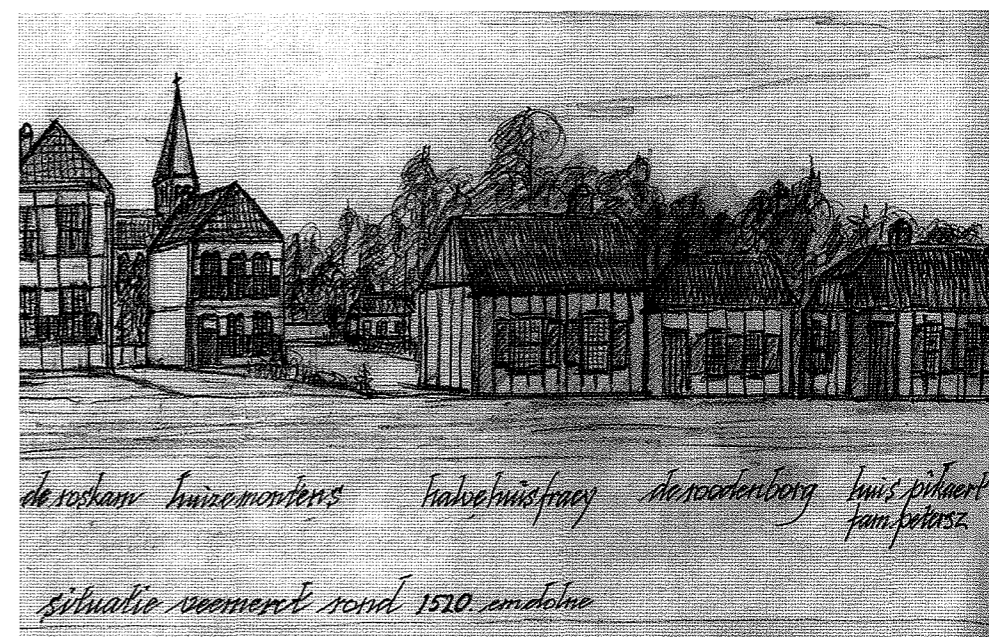 de roskam huize montens halve huis fraey de roodenborg huis pikaert
fam. petersz
situatie veemerct rond 1520.